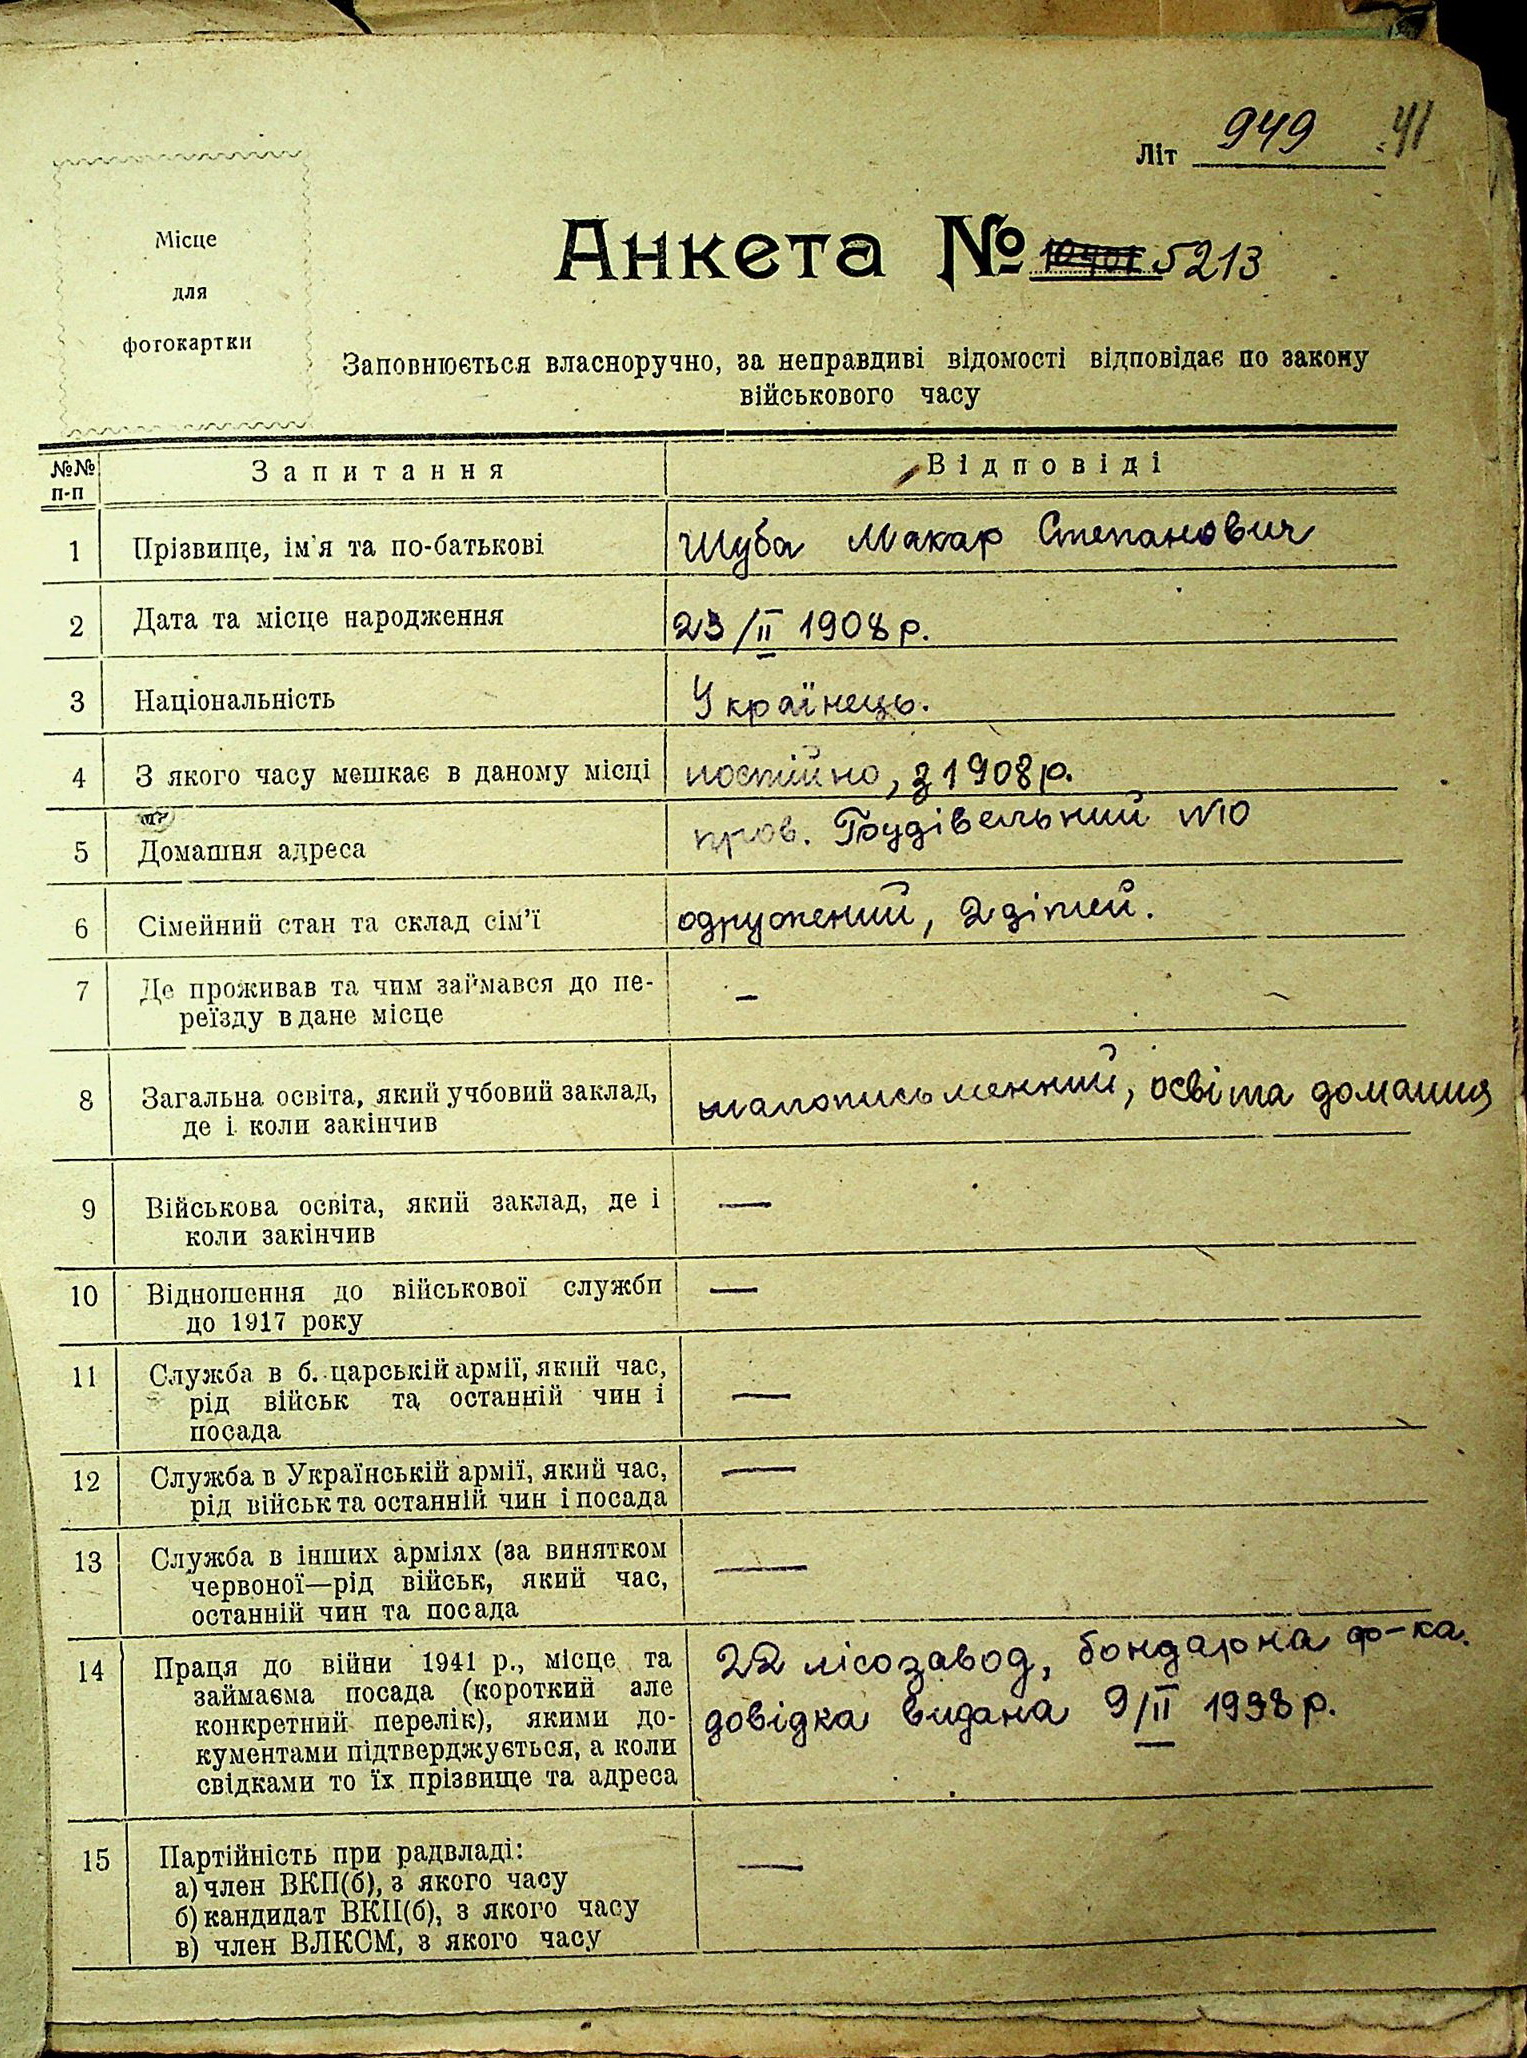 949
41
Літ
Місце
для
фотокартки
Анкета № 10401 5213
Заповнюється власноручно, за неправдиві відомості відповідає по закону
військового часу
№№ п-п
Запитання
Відповіді
1
Прізвище, ім'я та по-батькові
Шуба Макар Степанович
2
Дата та місце народження
23/II 1908 р.
3
Національність
Українець.
4
З якого часу мешкає в даному місці
постійно, з 1908 р.
5
Домашня адреса
пров. Будівельний №10
6
Сімейний стан та склад сім'ї
одружений, 2 дітей.
7
Де проживав та чим займався до пе-
реїзду в дане місце
–
8
Загальна освіта, який учбовий заклад,
де і коли закінчив
малописьменний, освіта домашня
9
Військова освіта, який заклад, де і
коли закінчив
—
10
Відношення до військової служби
до 1917 року
—
11
Служба в б. царській армії, який час,
рід військ та останній чин і
посада
—
12
Служба в Українській армії, який час,
рід військ та останній чин і посада
—
13
Служба в інших арміях (за винятком
червоної—рід військ, який час,
останній чин та посада
—
14
Праця до війни 1941 р., місце та
займаєма посада (короткий але
конкретний перелік), якими до-
кументами підтверджується, а коли
свідками то їх прізвище та адреса
22 лісозавод, бондарна ф-ка.
довідка видана 9/II 1938 р.
15
Партійність при радвладі:
а) член ВКП(б), з якого часу
б) кандидат ВКП(б), з якого часу
в) член ВЛКСМ, з якого часу
—